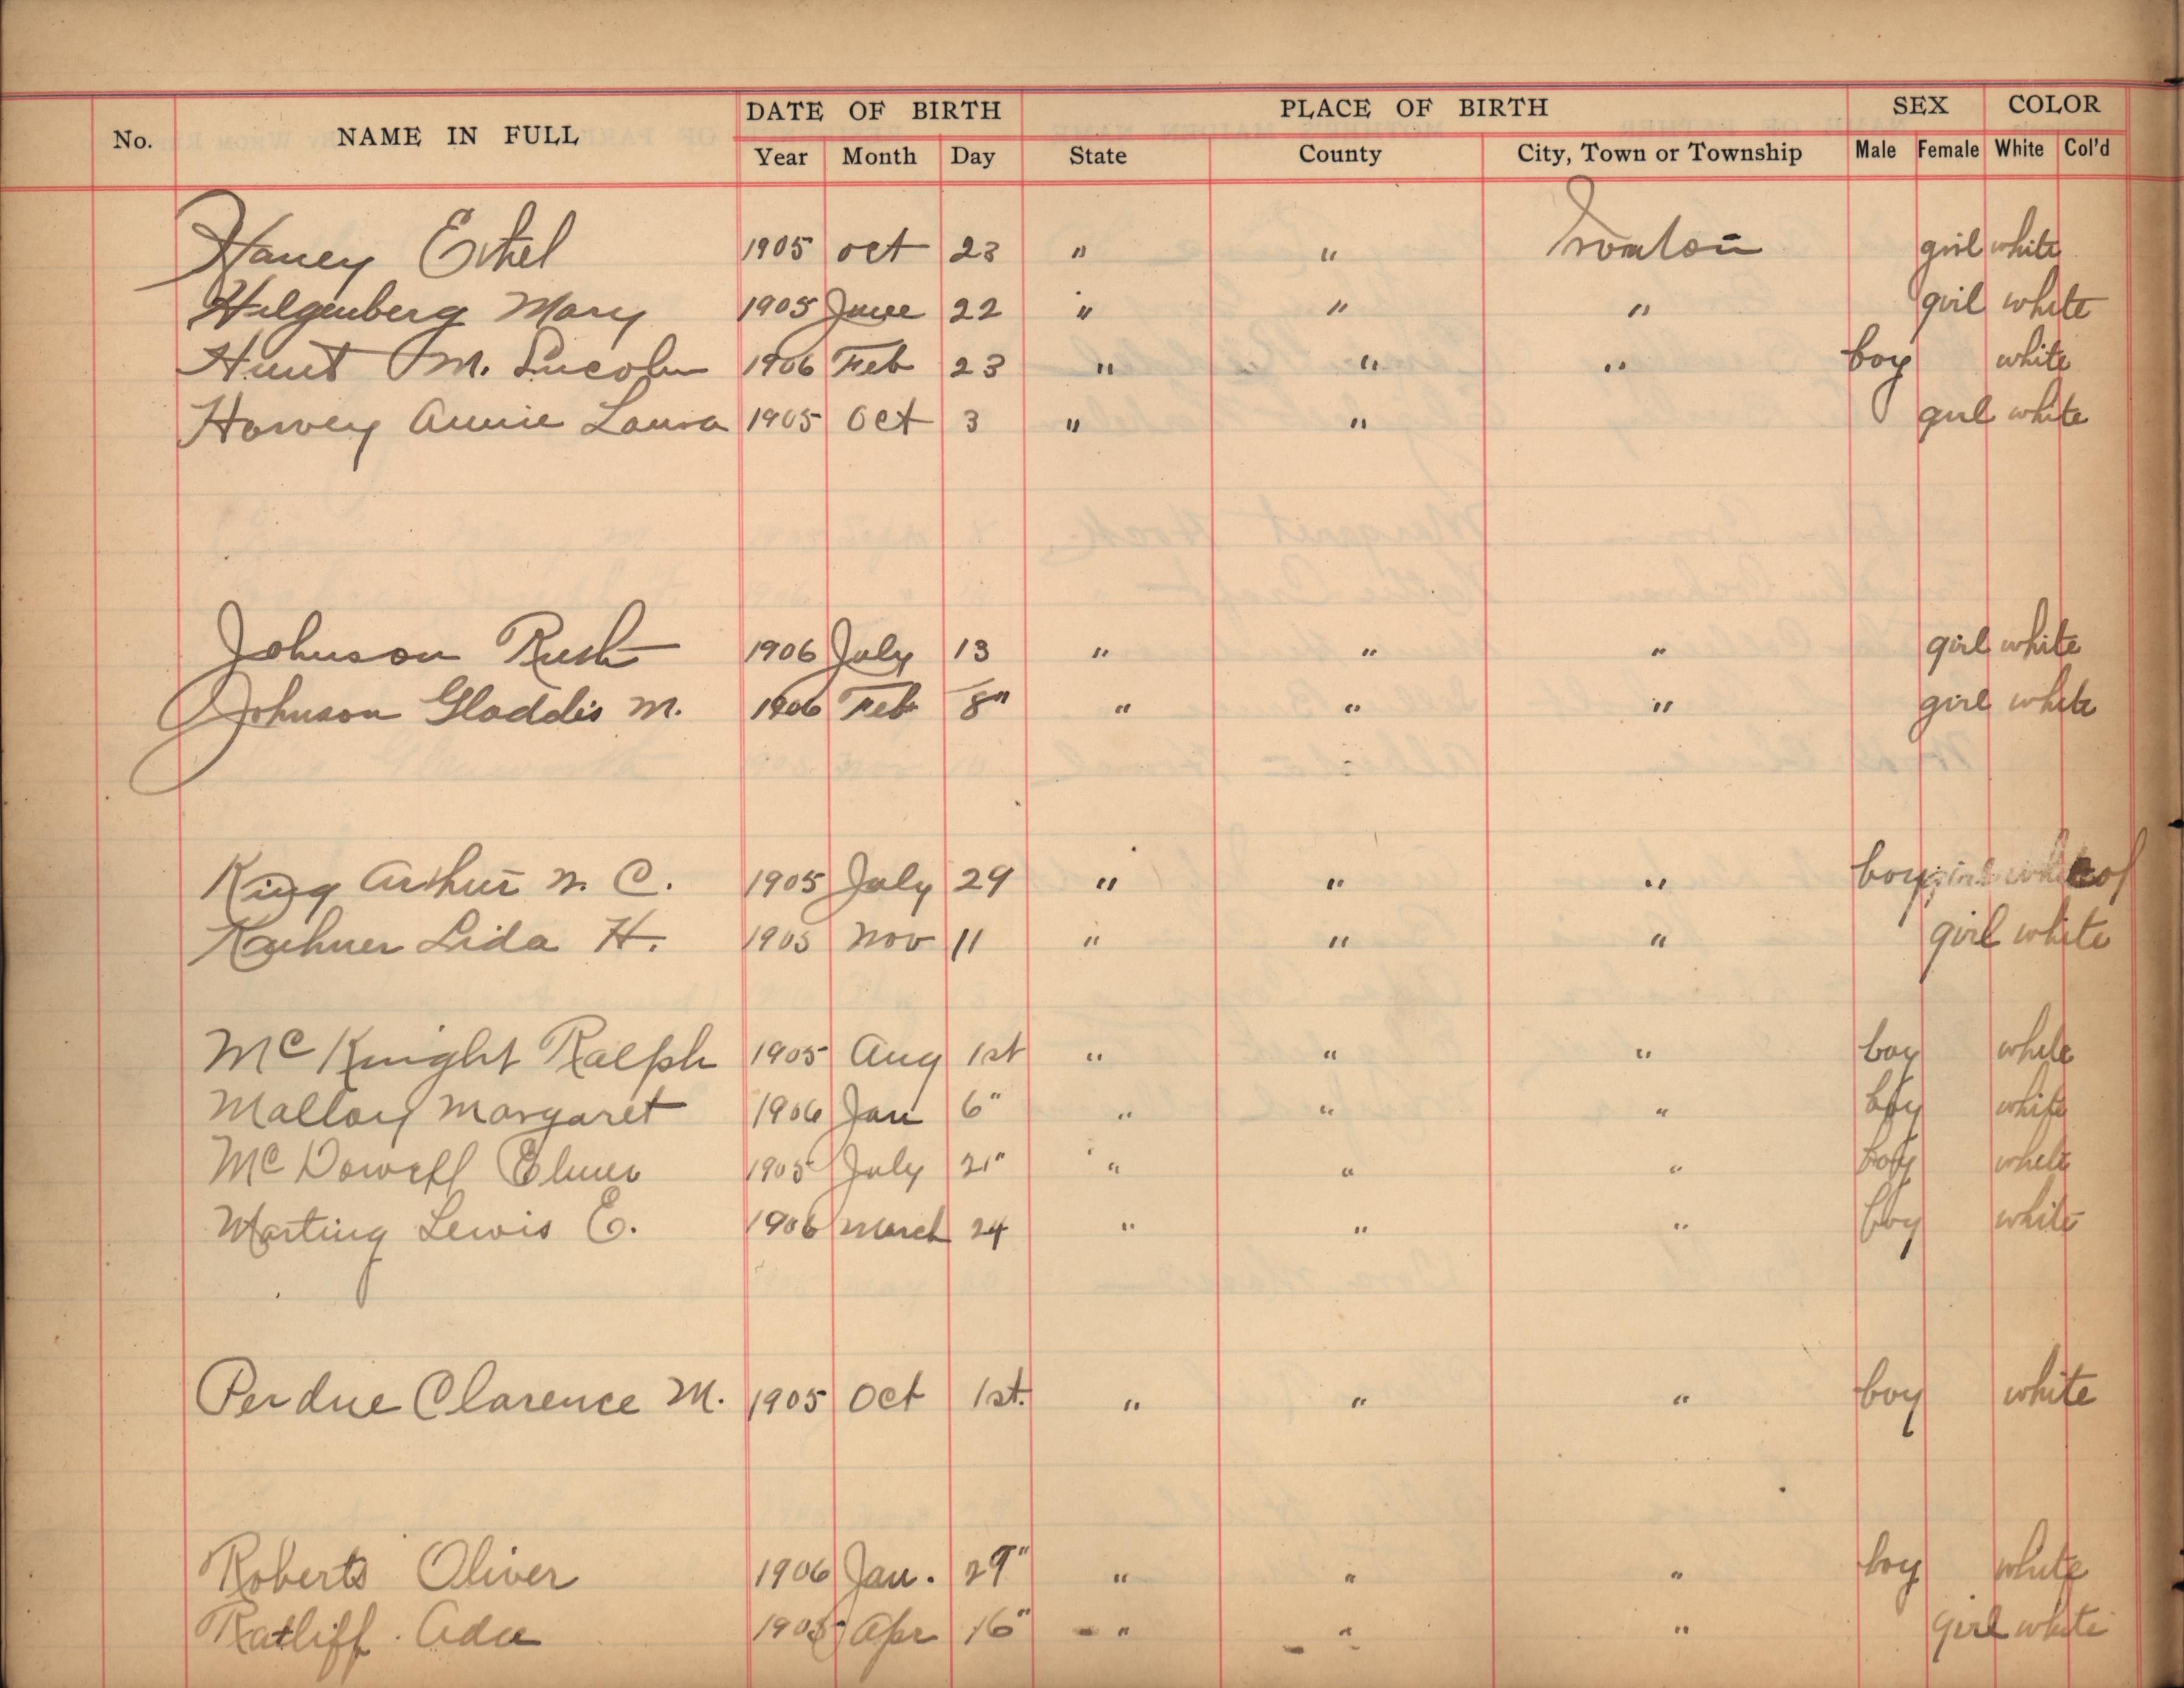 DATE OF BIRTH PLACE OF BIRTH SEX COLOR
No. NAME IN FULL Year Month Day State County City, Town or Township Male Female White Col'd
Haney Ethel 1905 oct 23 " " Ironton girl white
Hilgenberg Mary 1905 June 22 " " " girl white
Hunt M. Lincoln 1906 Feb 23 " " " boy white
Harvey Annie Laura 1905 Oct 3 " " girl white
Johnson Ruth 1906 July 13 " " " girl white
Johnson Gladdis M. 1906 Feb 8" " " " girl white
King Arthur N. C. 1905 July 29 " " " boy col
Kaehner Lida H. 1905 Nov 11 " " " girl white
McKnight Ralph 1905 Aug 1st " " " boy white
Mallory Margaret 1906 Jan 6" " " " boy white
McDowell Elmer 1905 July 21" " " " boy white
Marting Lewis E. 1906 March 24 " " " boy white
Perdue Clarence M. 1905 Oct 1st. " " " boy white
Roberts Oliver 1906 Jan. 29" " " " boy white
Ratliff Ada 1905 Apr 16" " " " girl white